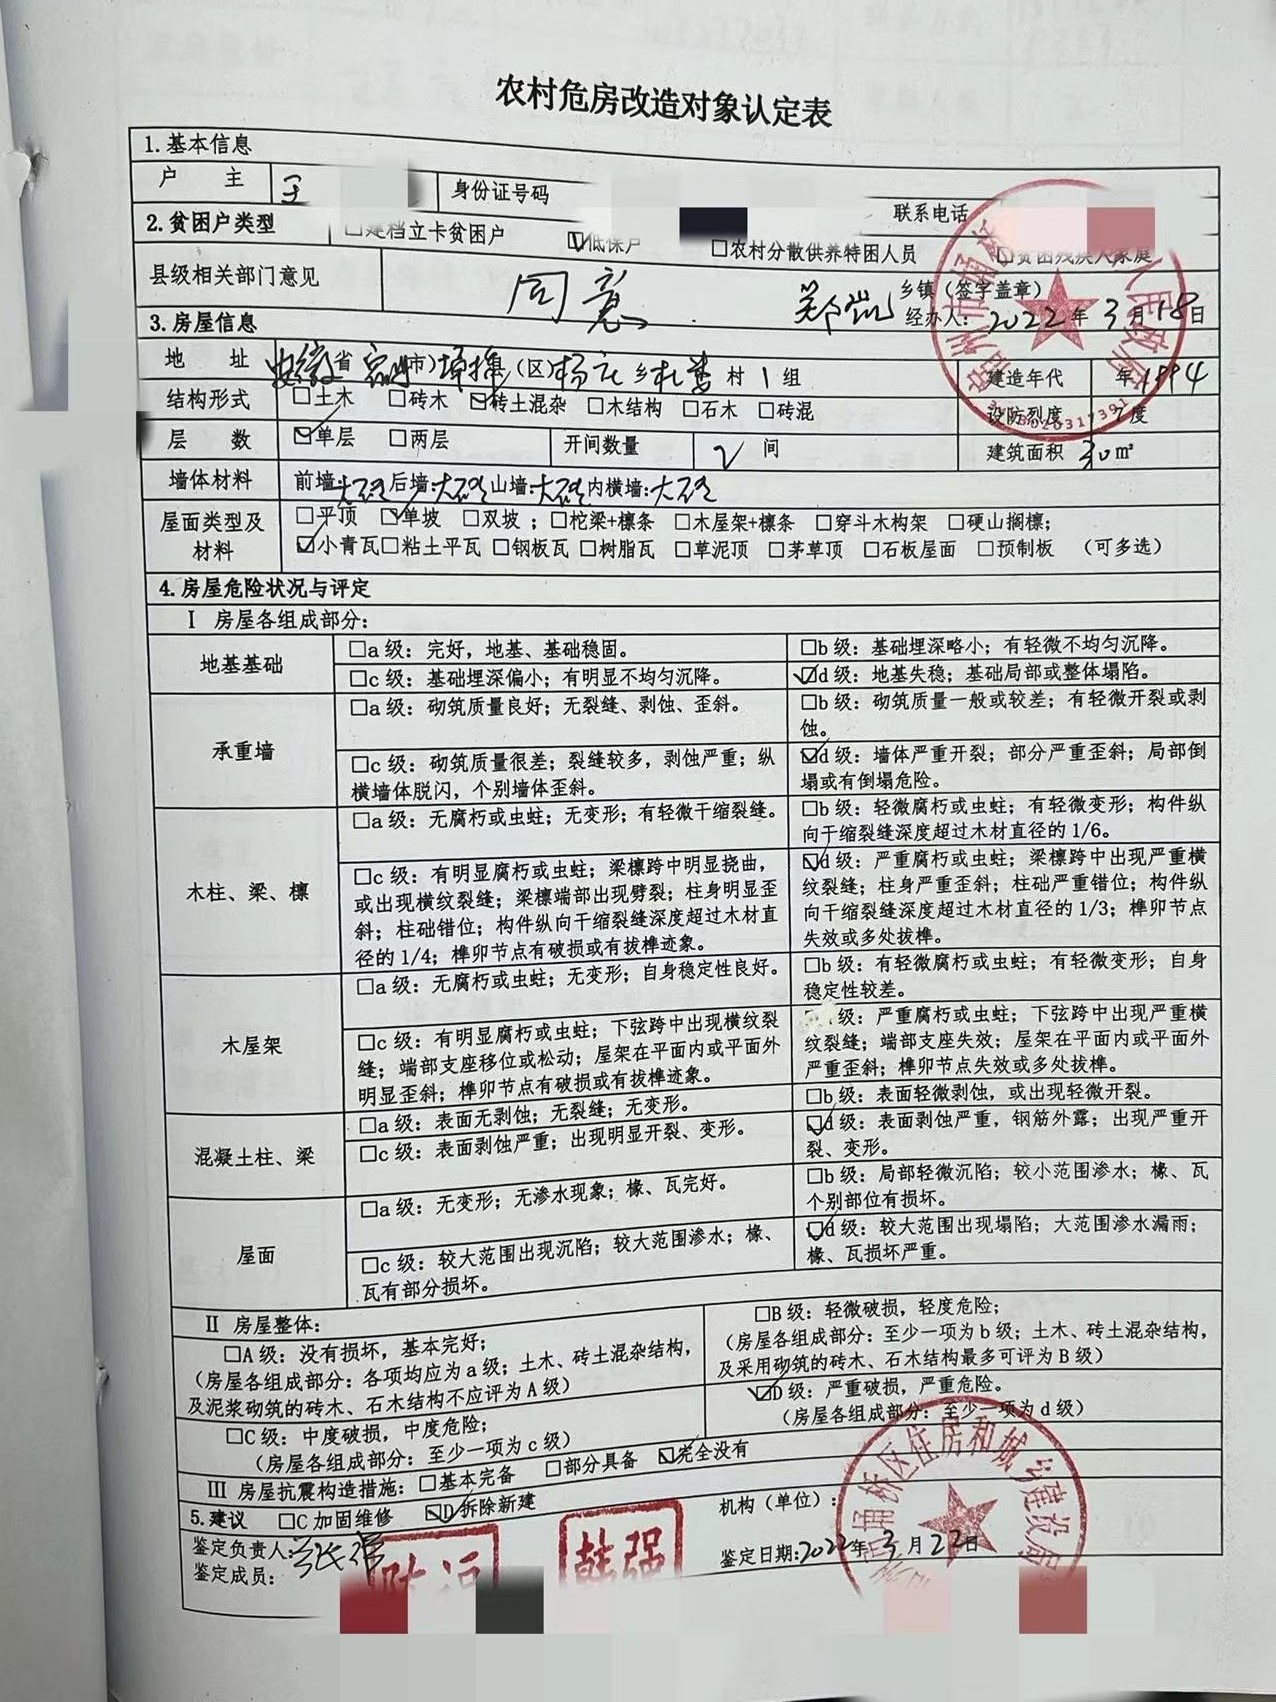 农村危房改造对象认定表
1.基本信息
户 主 王 身份证号码 联系电话
2.贫困户类型 □建档立卡贫困户 ☑低保户 □农村分散供养特困人员 □贫困残疾人家庭
县级相关部门意见 同意 乡镇(签字盖章)
经办人: 2022年3月18日
3.房屋信息
地 址 安徽省宿州(市)埇桥(区)杨庄乡 村1组 建造年代 年1994
结构形式 □土木 □砖木 ☑砖土混杂 □木结构 □石木 □砖混 设防烈度 7度
层 数 ☑单层 □两层 开间数量 2 间 建筑面积 30m²
墙体材料 前墙: 后墙: 山墙: 内横墙:
屋面类型及材料 □平顶 ☑单坡 □双坡 ;□柁梁+檩条 □木屋架+檩条 □穿斗木构架 □硬山搁檩;
☑小青瓦□粘土平瓦 □钢板瓦 □树脂瓦 □草泥顶 □茅草顶 □石板屋面 □预制板 (可多选)
4.房屋危险状况与评定
Ⅰ 房屋各组成部分:
地基基础
□a级:完好,地基、基础稳固。
□b级:基础埋深略小;有轻微不均匀沉降。
□c级:基础埋深偏小;有明显不均匀沉降。
☑d级:地基失稳;基础局部或整体塌陷。
承重墙
□a级:砌筑质量良好;无裂缝、剥蚀、歪斜。
□b级:砌筑质量一般或较差;有轻微开裂或剥
蚀。
□c级:砌筑质量很差;裂缝较多,剥蚀严重;纵
横墙体脱闪,个别墙体歪斜。
☑d级:墙体严重开裂;部分严重歪斜;局部倒
塌或有倒塌危险。
木柱、梁、檩
□a级:无腐朽或虫蛀;无变形;有轻微干缩裂缝。
□b级:轻微腐朽或虫蛀;有轻微变形;构件纵
向干缩裂缝深度超过木材直径的1/6。
□c级:有明显腐朽或虫蛀;梁檩跨中明显挠曲,
或出现横纹裂缝;梁檩端部出现劈裂;柱身明显歪
斜;柱础错位;构件纵向干缩裂缝深度超过木材直
径的1/4;榫卯节点有破损或有拔榫迹象。
☑d级:严重腐朽或虫蛀;梁檩跨中出现严重横
纹裂缝;柱身严重歪斜;柱础严重错位;构件纵
向干缩裂缝深度超过木材直径的1/3;榫卯节点
失效或多处拔榫。
木屋架
□a级:无腐朽或虫蛀;无变形;自身稳定性良好。
□b级:有轻微腐朽或虫蛀;有轻微变形;自身
稳定性较差。
□c级:有明显腐朽或虫蛀;下弦跨中出现横纹裂
缝;端部支座移位或松动;屋架在平面内或平面外
明显歪斜;榫卯节点有破损或有拔榫迹象。
级:严重腐朽或虫蛀;下弦跨中出现严重
横纹裂缝;端部支座失效;屋架在平面内或平面外
严重歪斜;榫卯节点失效或多处拔榫。
混凝土柱、梁
□a级:表面无剥蚀;无裂缝;无变形。
□b级:表面轻微剥蚀,或出现轻微开裂。
□c级:表面剥蚀严重;出现明显开裂、变形。
☑d级:表面剥蚀严重,钢筋外露;出现严重开
裂、变形。
屋面
□a级:无变形;无渗水现象;椽、瓦完好。
□b级:局部轻微沉陷;较小范围渗水;椽、瓦
个别部位有损坏。
□c级:较大范围出现沉陷;较大范围渗水;椽、
瓦有部分损坏。
☑d级:较大范围出现塌陷;大范围渗水漏雨;
椽、瓦损坏严重。
Ⅱ 房屋整体:
□A级:没有损坏,基本完好;
(房屋各组成部分:各项均应为a级;土木、砖土混杂结构,
及泥浆砌筑的砖木、石木结构不应评为A级)
□B级:轻微破损,轻度危险;
(房屋各组成部分:至少一项为b级;土木、砖土混杂结构,
及采用砌筑的砖木、石木结构最多可评为B级)
□C级:中度破损,中度危险;
(房屋各组成部分:至少一项为c级)
☑D级:严重破损,严重危险。
(房屋各组成部分:至少一项为d级)
Ⅲ 房屋抗震构造措施:□基本完备 □部分具备 ☑完全没有
5.建议 □C加固维修 ☑D拆除新建
机构(单位):
鉴定负责人:
鉴定成员:
韩强
鉴定日期:2022年3月22日
埇桥区住房和城乡建设局